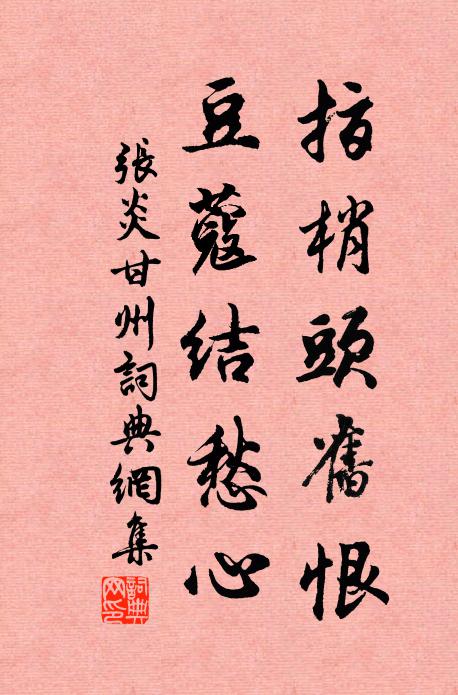 指梢頭舊恨
豆蔻結愁心
張炎甘州詞典網集
詞典網印